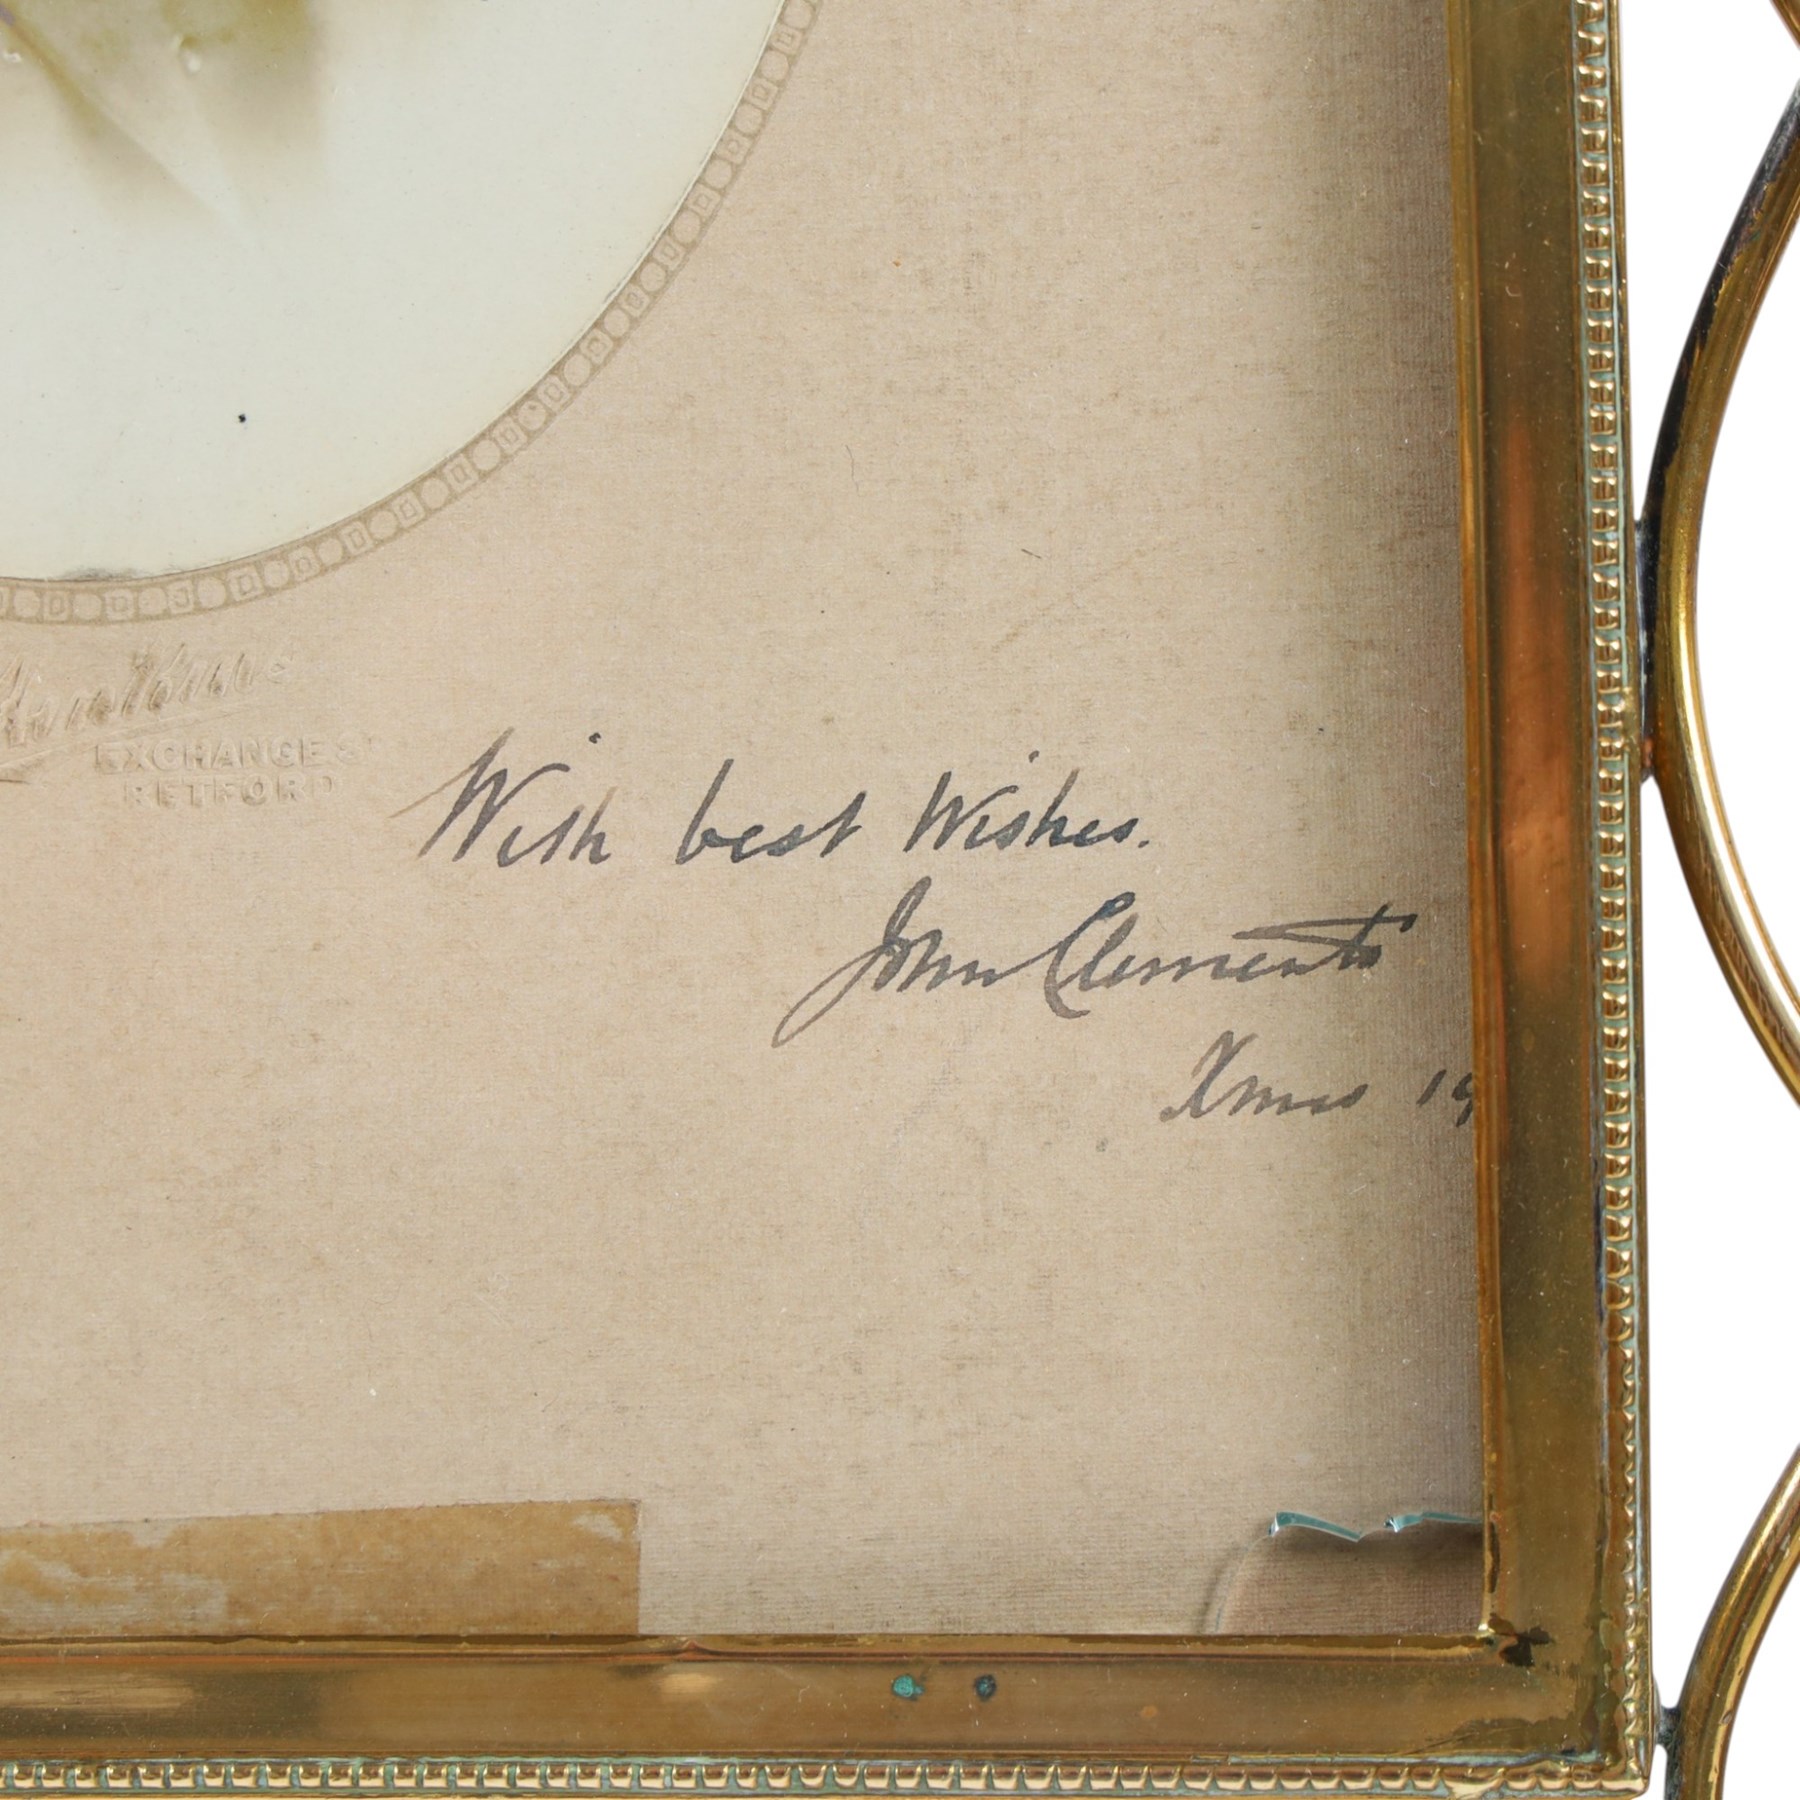 EXCHANGE St
RETFORD
With best Wishes.
John Clements
Xmas 19